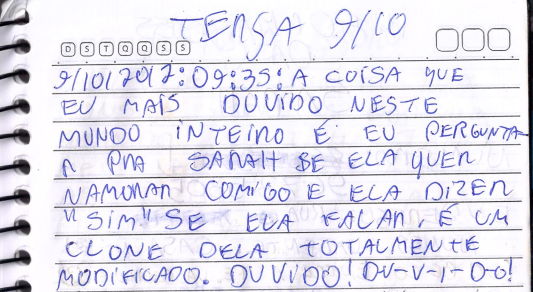 TERÇA 9/10
D S T Q Q S S
9/10/2012: 09:35: A COISA QUE
EU MAIS DUVIDO NESTE
MUNDO INTEIRO É EU PERGUNTA
R PRA SARAH SE ELA QUER
NAMORAR COMIGO E ELA DIZER
"SIM" SE ELA FALAR, É UM
CLONE DELA TOTALMENTE
MODIFICADO. DUVIDO! DU-V-I-D-O!